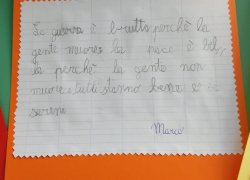 La guerra è brutta perchè la
gente muore, la pace è bel,
la perchè la gente non
muore, tutti stanno bene e è
sereni
Marco